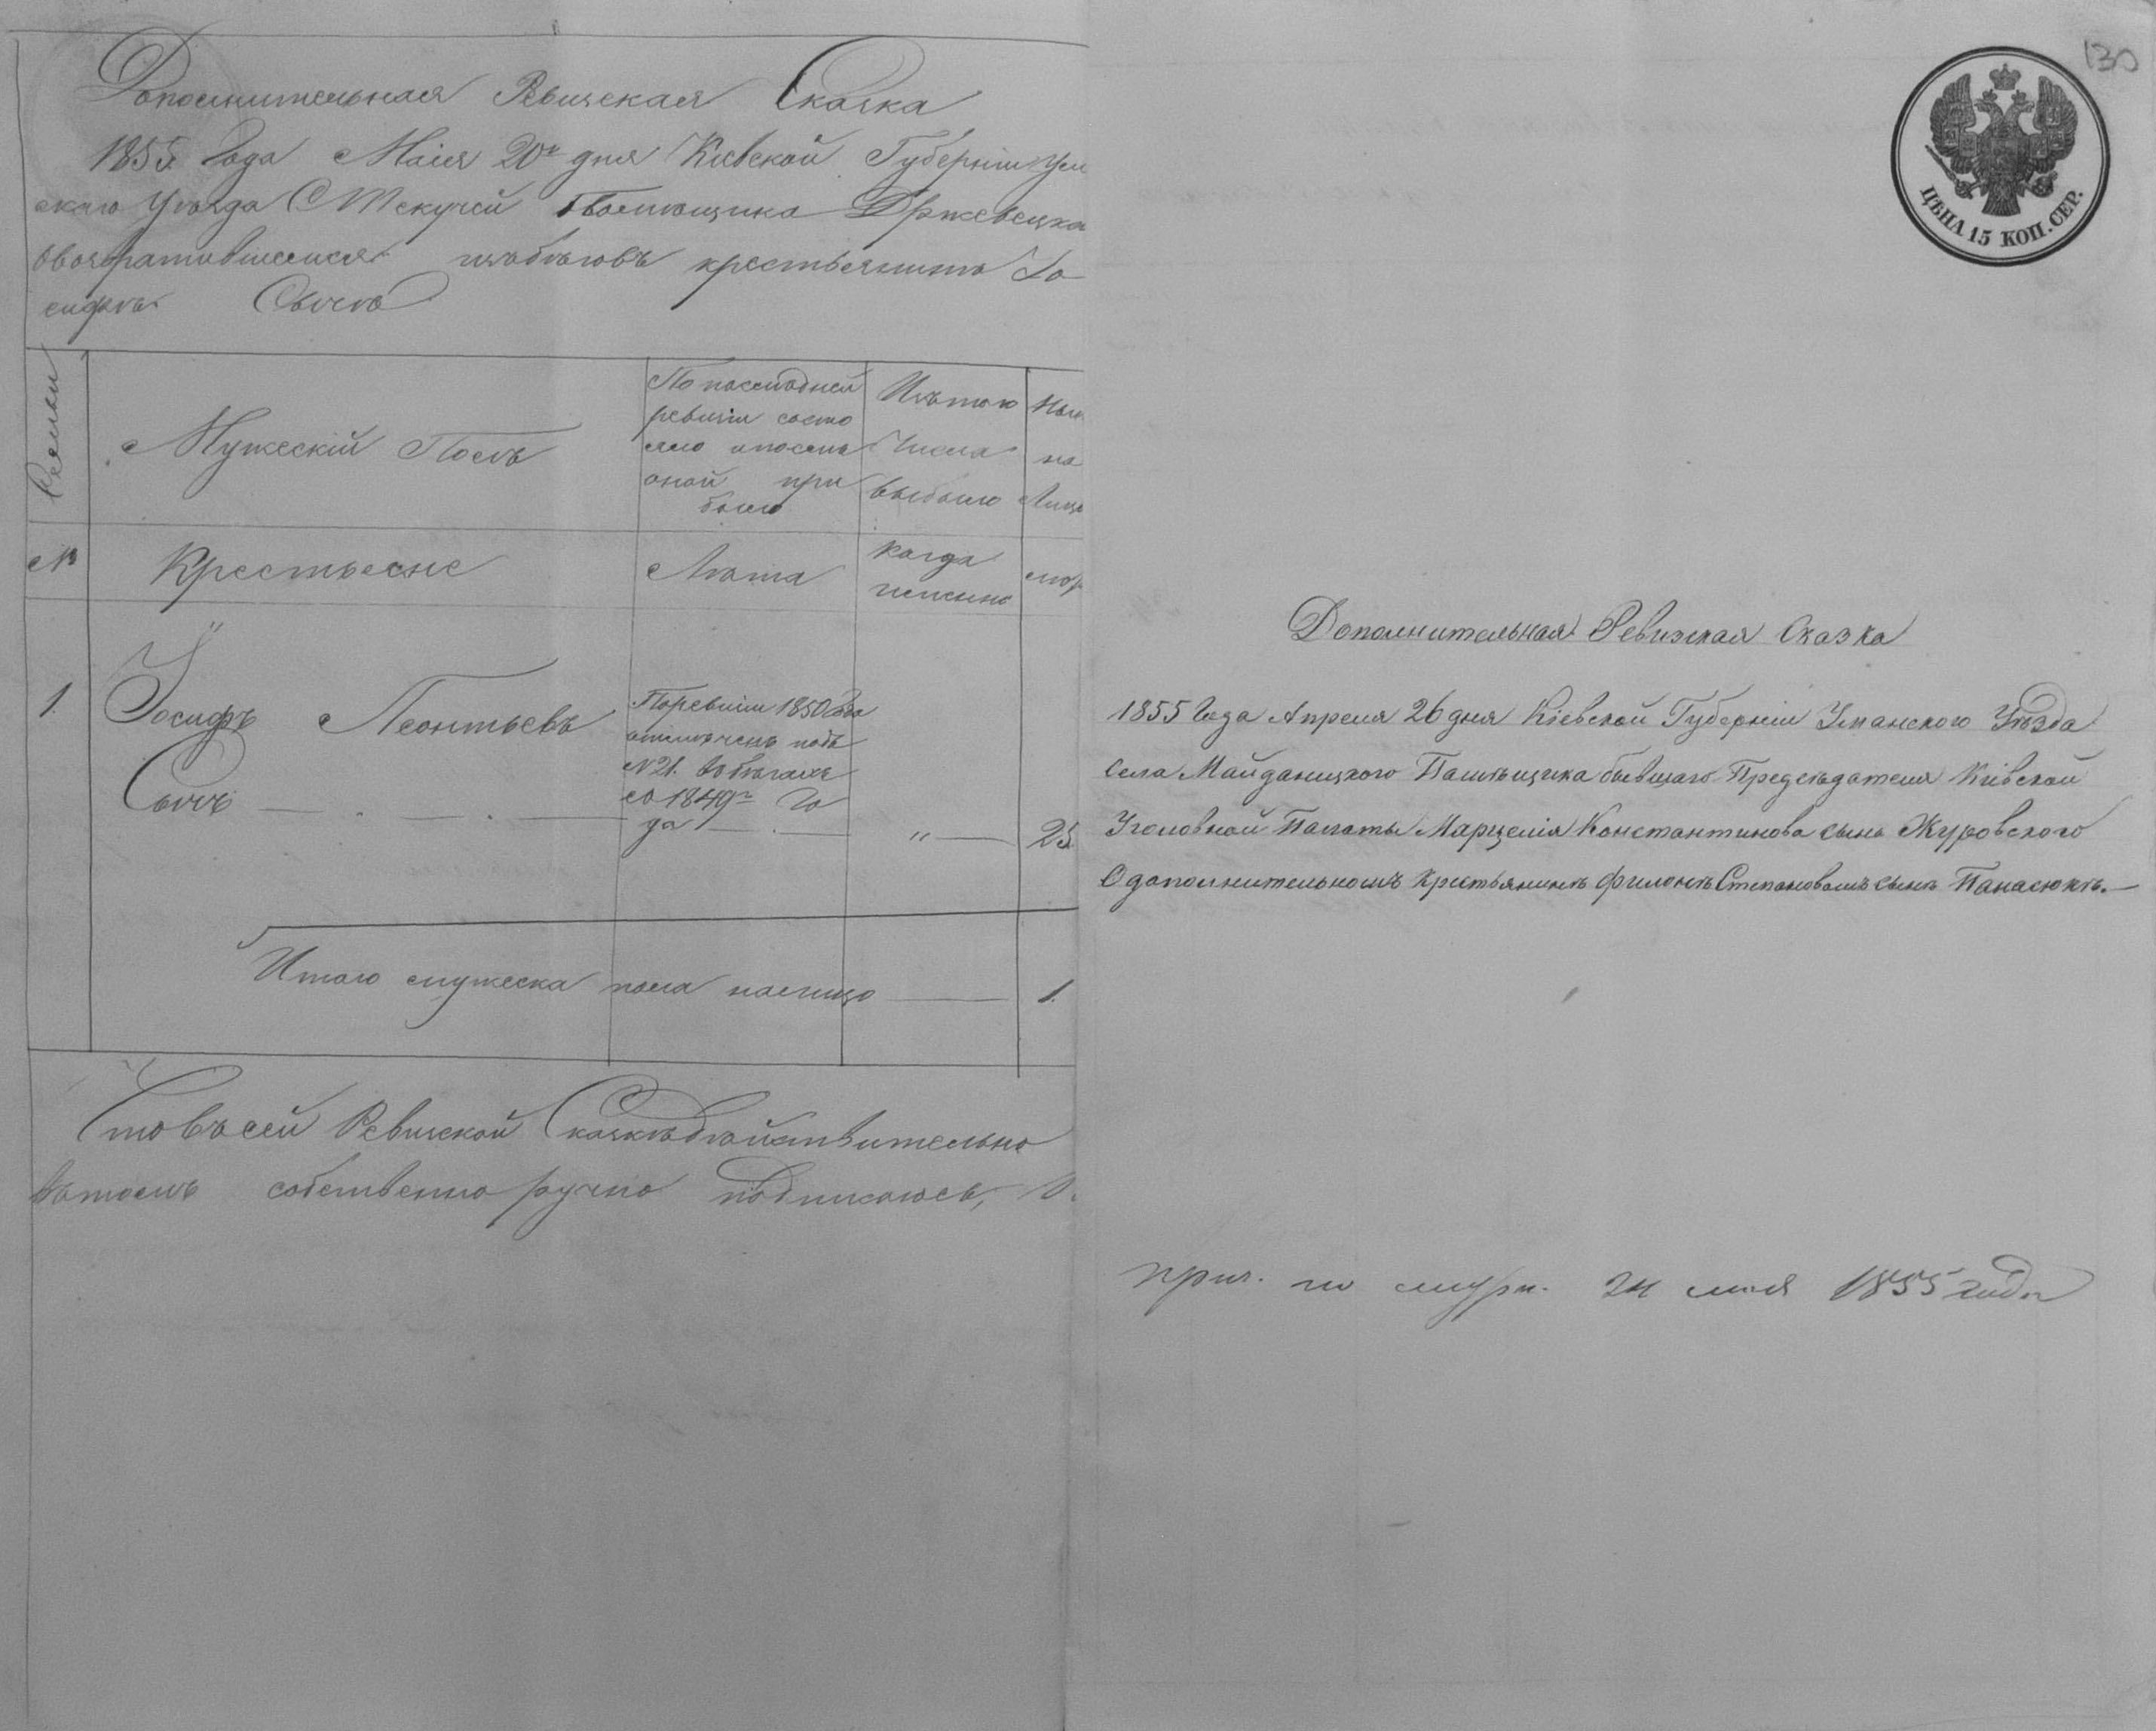 Дополнительная Ревизская Сказка
1855 Года Маия 20го дня Киевской Губерніи Ума
скаго Уѣзда С Текучей Помѣщика Држевецка
Овозвратившемся избѣговъ крестьянинѣ Іо
сифѣ Сычѣ
Мужескій Полъ
По последней
ревизіи состо
яло ипослѣ
оной при
было
Изъ того
Числа
выбыло
на
Лицо
№
Крестьяне
Лѣта
когда
именно
1.
Іосифъ Леонтьевъ
Сычъ
Поревизіи 1850 Года
отмѣченъ подъ
№21. въ бѣгахъ
со 1849го го
да
"
25
Итого мужеска пола налицо
1.
Что въ сей Ревизской Сказкѣ дѣйствительно
вътомъ собственно ручно подписуюсь,
130
ЦѢНА 15 КОП. СЕР.
Дополнительная Ревизская Сказка
1855 Года Апреля 26 дня Кіевской Губерніи Уманского Уѣзда
Села Майданицкого Памѣщика бывшаго Председателя Кіевской
Уголовной Палаты Марцелія Константинова сына Журовского
О дополнительномъ Крестьянинѣ Филонѣ Степановомъ сынѣ Панасюкѣ.—
24 мая 1855 года